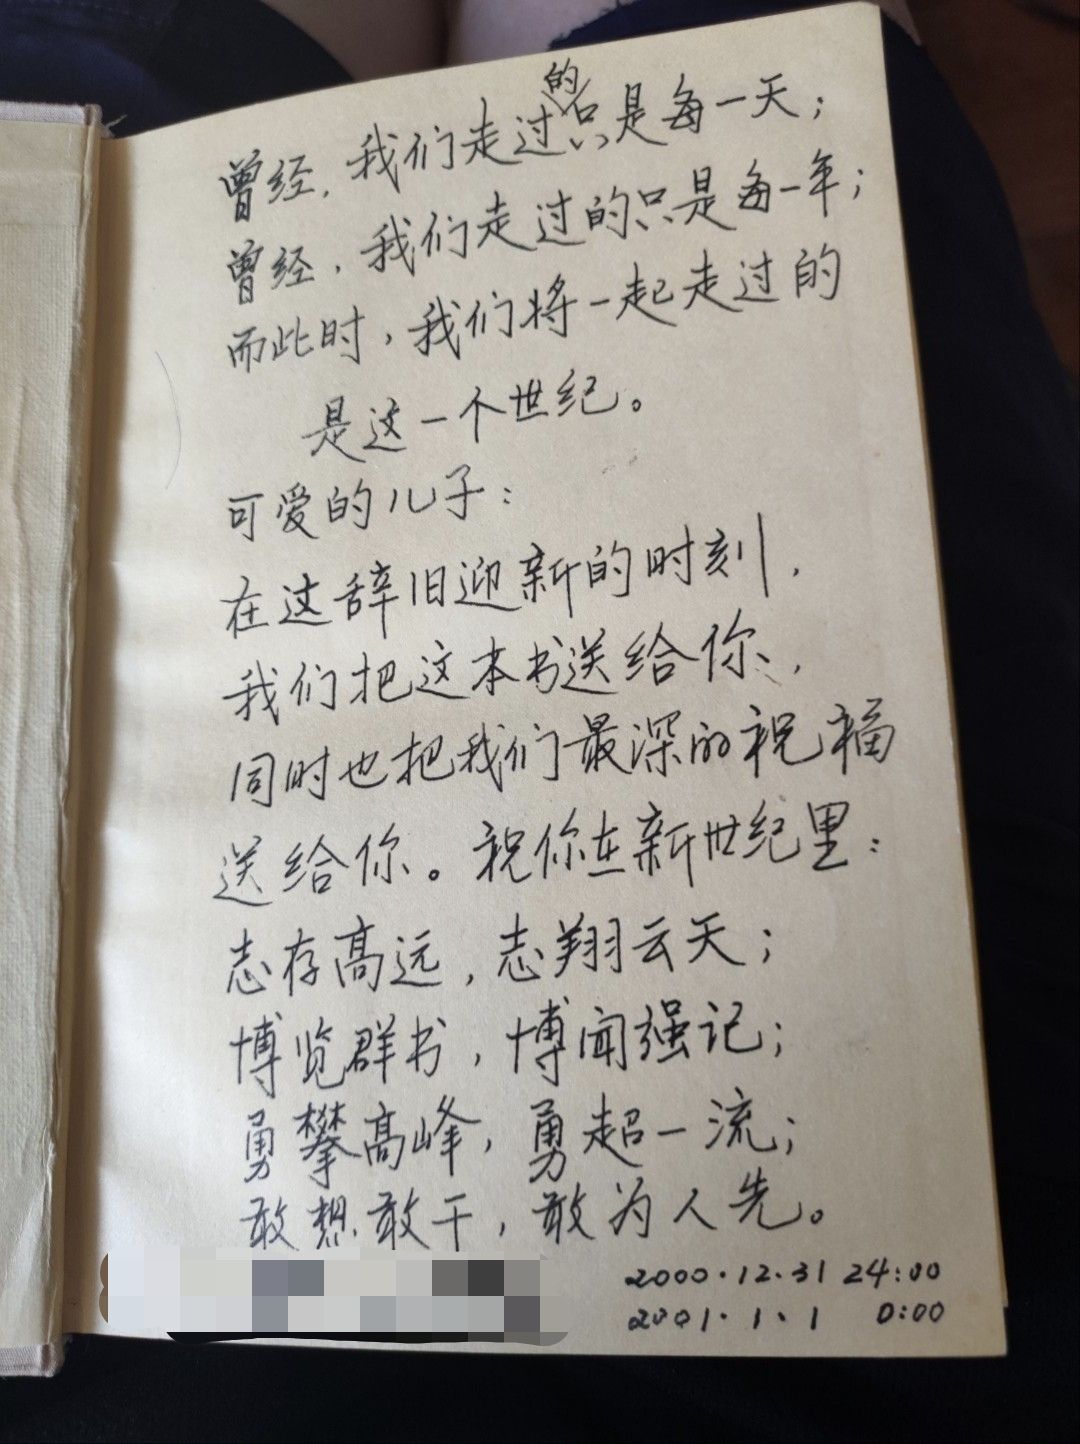 曾经，我们走过的只是每一天；
曾经，我们走过的只是每一年；
而此时，我们将一起走过的
是这一个世纪。
可爱的儿子：
在这辞旧迎新的时刻，
我们把这本书送给你、，
同时也把我们最深的祝福
送给你。祝你在新世纪里：
志存高远，志翔云天；
博览群书，博闻强记；
勇攀高峰，勇超一流；
敢想敢干，敢为人先。
2000.12.31 24:00
2001.1.1 0:00